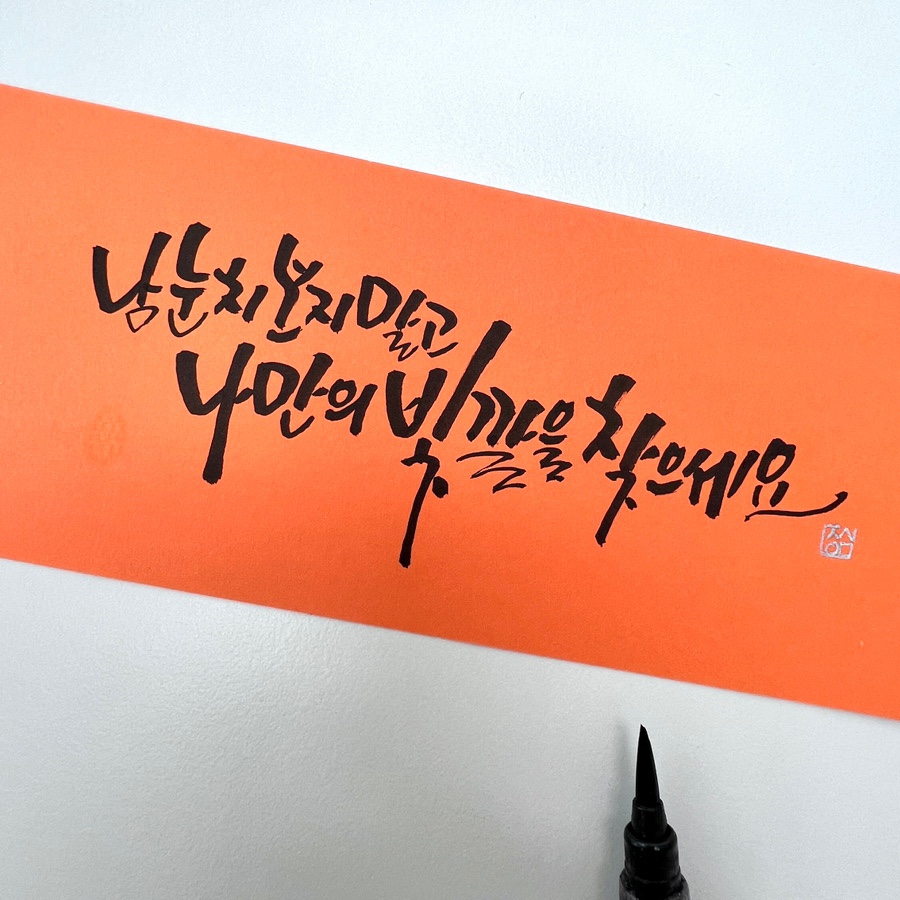 남눈치보지말고
나만의빛깔을찾으세요